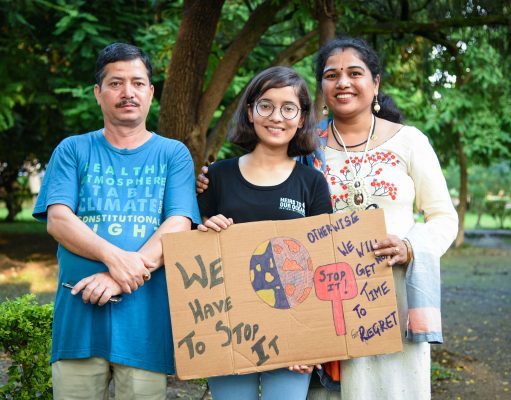 HEALTHY
ATMOSPHERE
STABLE
CLIMATE
CONSTITUTIONAL
RIGHT
HEIRS TO
WE
HAVE
TO STOP
IT
STOP
IT!
OTHERWISE
WE WILL
GET NO
TIME
TO
REGRET